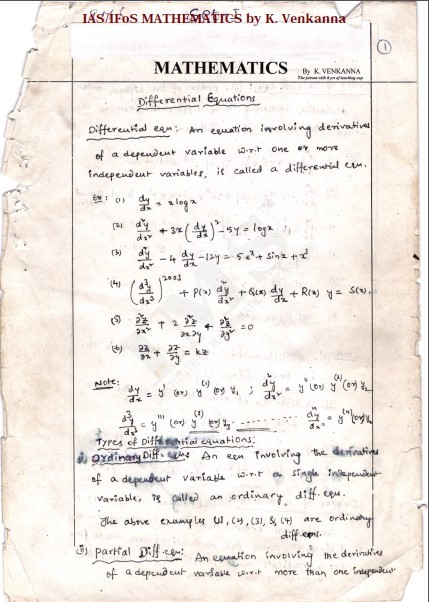 IAS/IFoS MATHEMATICS by K. Venkanna
Set-I
1
MATHEMATICS By K. VENKANNA
The person with 8 yrs of teaching exp.
Differential Equations
Differential eqn: An equation involving derivatives
of a dependent variable w.r.t one or more
independent variables, is called a differential eqn.
Ex: (1) dy/dx = x log x
(2) d²y/dx² + 3x (dy/dx)² - 5y = log x
(3) d²y/dx² - 4 dy/dx - 12y = 5eˣ + sinx + x³
(4) (d³y/dx³)²⁰⁰³ + P(x) d²y/dx² + Q(x) dy/dx + R(x) y = S(x).
(5) ∂²z/∂x² + 2 ∂²z/∂x∂y + ∂²z/∂y² = 0
(6) ∂z/∂x + ∂z/∂y = kz
Note: dy/dx = y' (or) y⁽¹⁾ (or) y₁ ; d²y/dx² = y'' (or) y⁽²⁾ (or) y₂
d³y/dx³ = y''' (or) y⁽³⁾ (or) y₃ .......... dⁿy/dxⁿ = y⁽ⁿ⁾ (or) yₙ
Types of Differential equations:
Ordinary Diff. eqn: An eqn involving the derivatives
of a dependent variable w.r.t a single independent
variable, is called an ordinary diff. eqn.
The above examples (1), (2), (3), & (4) are ordinary
diff. eqns.
(ii) Partial Diff. eqn: An equation involving the derivatives
of a dependent variable w.r.t more than one independent